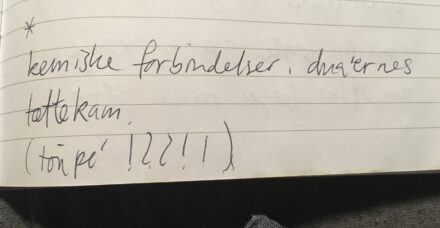 *
kemiske forbindelser. dna'ernes
tættekam.
(toupé !??!!)